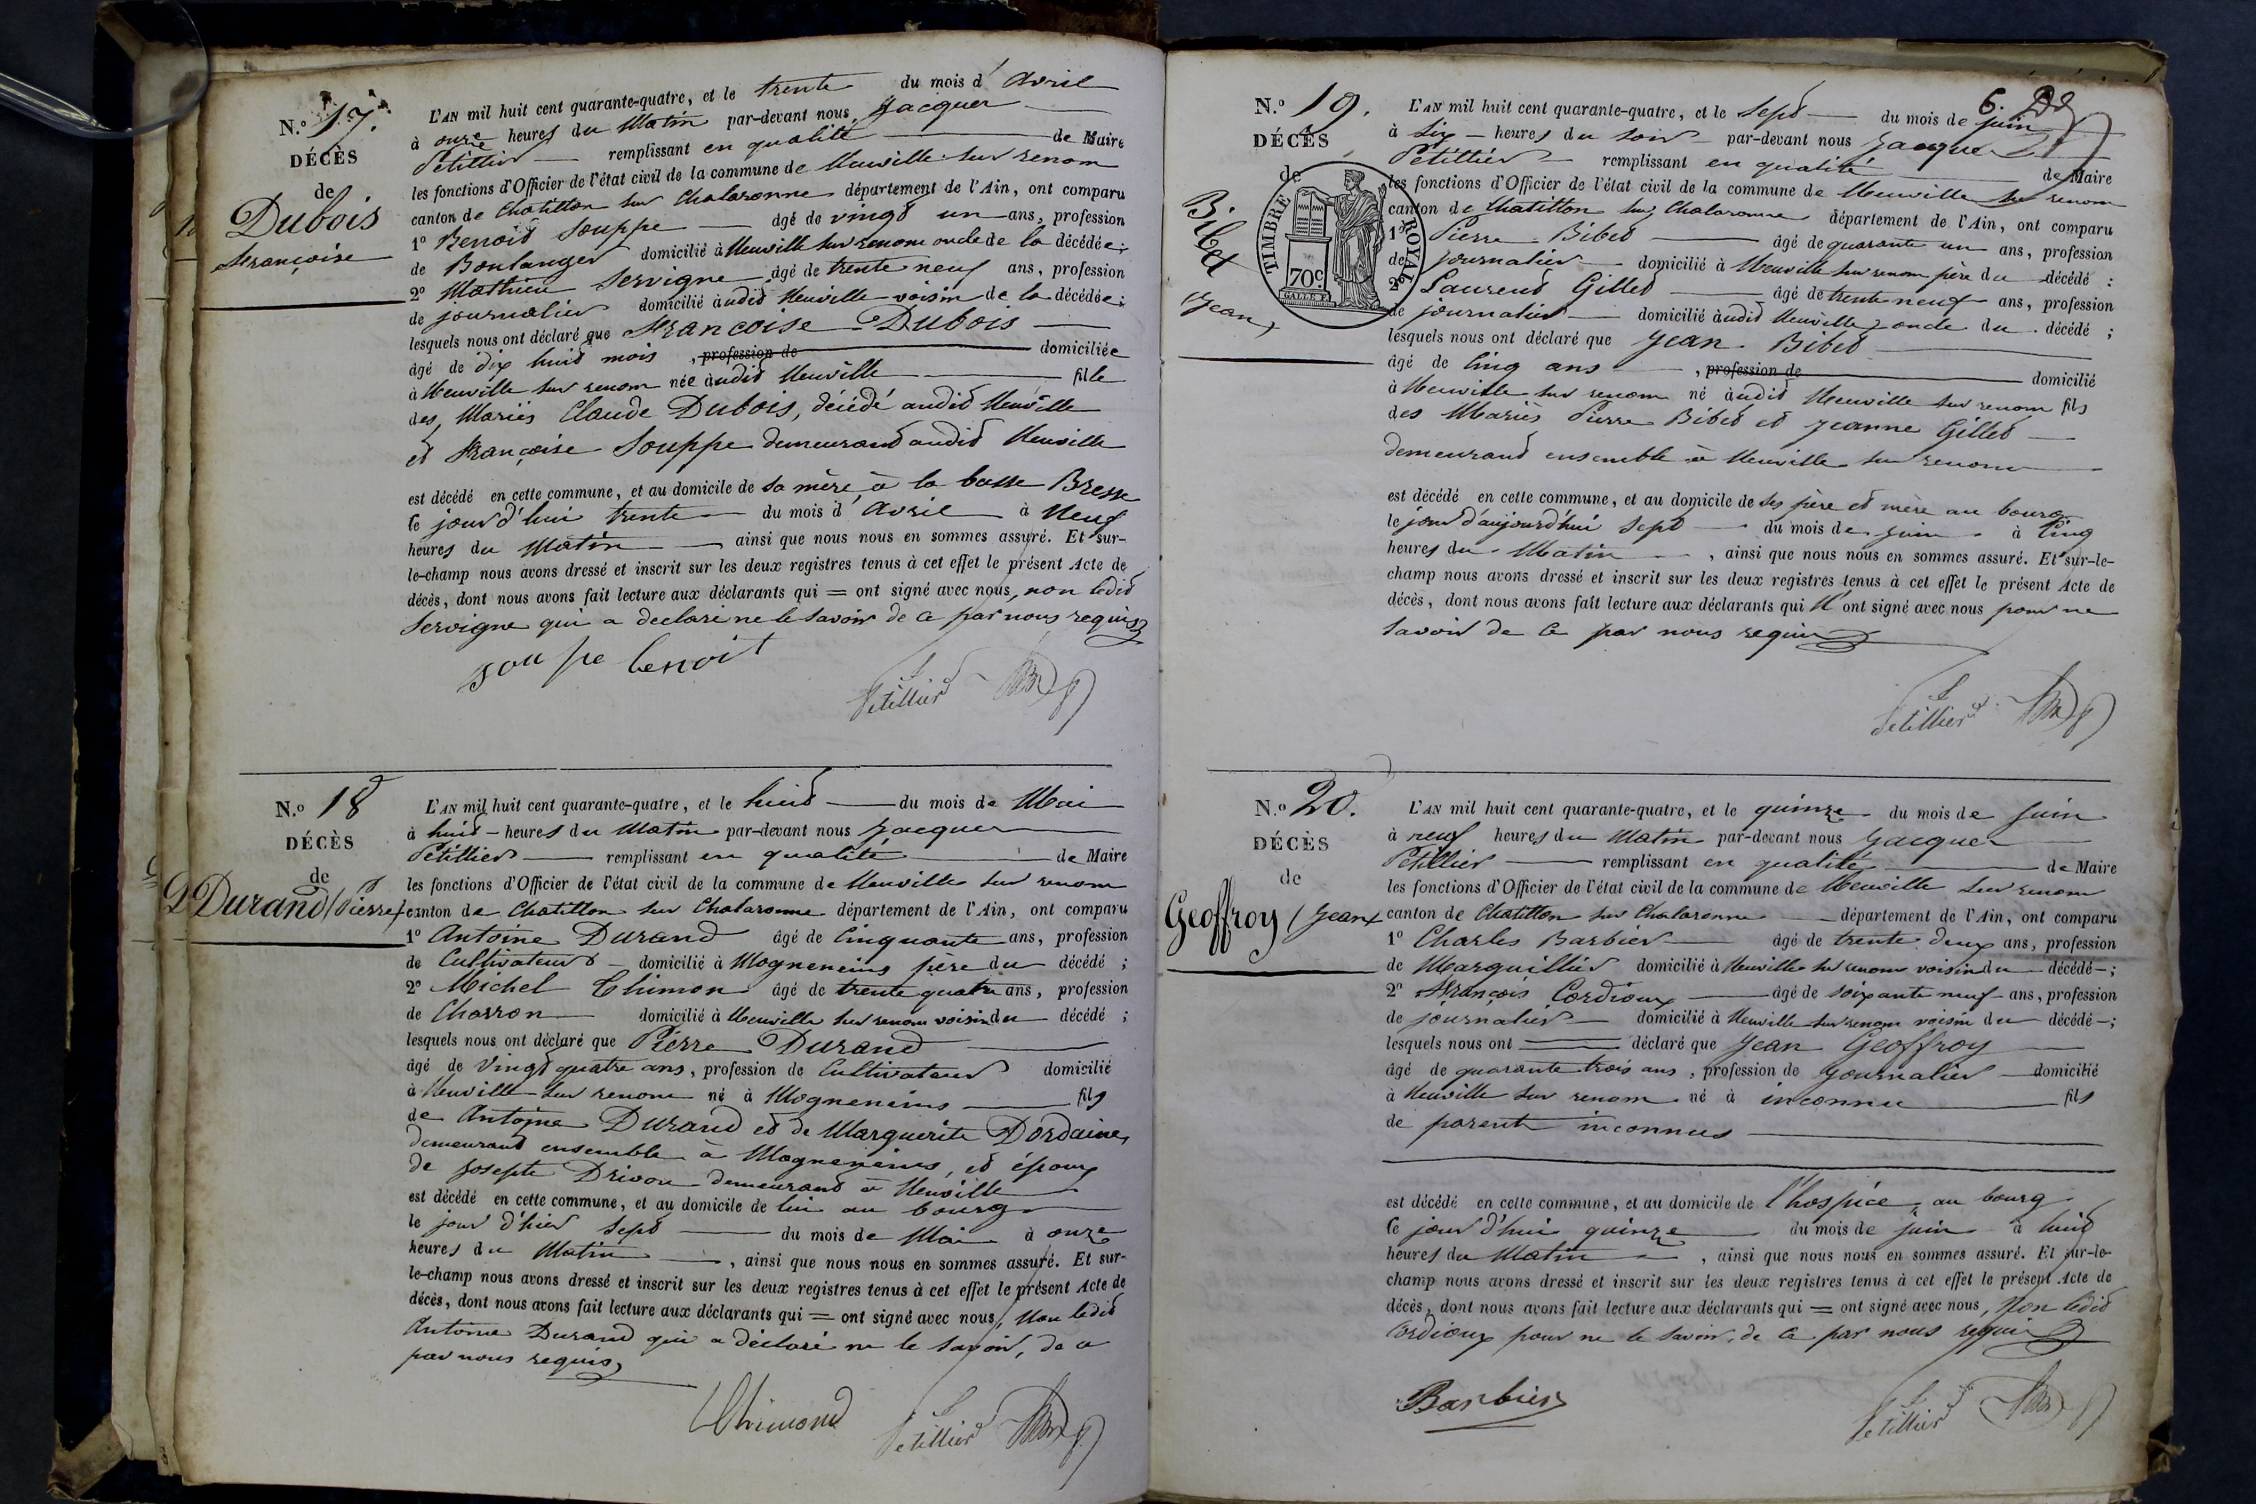 N.o 17.
DÉCÈS
de
Dubois
françoise
L'AN mil huit cent quarante-quatre, et le trente du mois d'avril
à onze heures du Matin par-devant nous Jacques
Pétillier remplissant en qualité de Maire
les fonctions d'Officier de l'état civil de la commune de Neuville sur renom
canton de Chatillon sur Chalaronne département de l'Ain, ont comparu
1o Benoit Souppe âgé de vingt un ans, profession
de Boulanger domicilié à Neuville sur renom oncle de la décédée;
2o Mathieu Servigne âgé de trente neuf ans, profession
de journalier domicilié audit Neuville voisin de la décédée;
lesquels nous ont déclaré que françoise Dubois
âgé de dix huit mois, profession de domiciliée
à Neuville sur renom née audit Neuville fille
des Mariés Claude Dubois, décédé audit Neuville
et françoise Souppe demeurant audit Neuville
est décédé en cette commune, et au domicile de sa mère, à la basse Bresse
le jour d'hui trente du mois d'avril à neuf
heures du Matin ainsi que nous nous en sommes assuré. Et sur-
le-champ nous avons dressé et inscrit sur les deux registres tenus à cet effet le présent Acte de
décès, dont nous avons fait lecture aux déclarants qui = ont signé avec nous, non ledit
Servigne qui a déclaré ne le savoir de ce par nous requis
soupe benoit
Pétillier
N.o 18
DÉCÈS
de
Durand (Pierre)
L'AN mil huit cent quarante-quatre, et le huit du mois de Mai
à huit heures du Matin par-devant nous Jacques
Pétillier remplissant en qualité de Maire
les fonctions d'Officier de l'état civil de la commune de Neuville sur renom
canton de Chatillon sur Chalaronne département de l'Ain, ont comparu
1o Antoine Durand âgé de Cinquante ans, profession
de Cultivateur domicilié à Mogneneins père du décédé;
2o Michel Thimon âgé de trente quatre ans, profession
de Charron domicilié à Neuville sur renom voisin du décédé;
lesquels nous ont déclaré que Pierre Durand
âgé de Vingt quatre ans, profession de Cultivateur domicilié
à Neuville sur renom né à Mogneneins fils
de Antoine Durand et de Marguerite Dordaine,
demeurant ensemble à Mogneneins, et époux
de Josepte Drivon demeurant à Neuville
est décédé en cette commune, et au domicile de lui au bourg
le jour d'hier sept du mois de Mai à onze
heures du Matin, ainsi que nous nous en sommes assuré. Et sur-
le-champ nous avons dressé et inscrit sur les deux registres tenus à cet effet le présent Acte de
décès, dont nous avons fait lecture aux déclarants qui = ont signé avec nous, Non ledit
Antoine Durand qui a déclaré ne le savoir, de ce
par nous requis,
Thimond Pétillier
6.
N.o 19.
DÉCÈS
de
TIMBRE ROYAL
70c
Bibet
(Jean)
L'AN mil huit cent quarante-quatre, et le Sept du mois de juin
à Six heures du soir par-devant nous Jacques
Pétillier remplissant en qualité de Maire
les fonctions d'Officier de l'état civil de la commune de Neuville sur renom
canton de Chatillon sur Chalaronne département de l'Ain, ont comparu
1o Pierre Bibet âgé de quarante un ans, profession
de journalier domicilié à Neuville sur renom père du décédé:
2o Laurent Gillet âgé de trente neuf ans, profession
de journalier domicilié audit Neuville oncle du décédé;
lesquels nous ont déclaré que Jean Bibet
âgé de Cinq ans, profession de domicilié
à Neuville sur renom né audit Neuville sur renom fils
des Mariés Pierre Bibet et Jeanne Gillet
demeurant ensemble à Neuville sur renom
est décédé en cette commune, et au domicile de Ses père et mère au bourg
le jour d'aujourd'hui Sept du mois de juin à Cinq
heures du Matin, ainsi que nous nous en sommes assuré. Et sur-le-
champ nous avons dressé et inscrit sur les deux registres tenus à cet effet le présent Acte de
décès, dont nous avons fait lecture aux déclarants qui N'ont signé avec nous pour ne
savoir de ce par nous requis
Pétillier
N.o 20.
DÉCÈS
de
Geoffroy (Jean)
L'AN mil huit cent quarante-quatre, et le quinze du mois de Juin
à neuf heures du Matin par-devant nous Jacques
Pétillier remplissant en qualité de Maire
les fonctions d'Officier de l'état civil de la commune de Neuville sur renom
canton de Chatillon sur Chalaronne département de l'Ain, ont comparu
1o Charles Barbier âgé de trente deux ans, profession
de Marguillier domicilié à Neuville sur renom voisin du décédé;
2o françois Cordioux âgé de soixante neuf ans, profession
de journalier domicilié à Neuville sur renom voisin du décédé;
lesquels nous ont déclaré que Jean Geoffroy
âgé de quarante trois ans, profession de Journalier domicilié
à Neuville sur renom né à inconnu fils
de parents inconnus
est décédé en cette commune, et au domicile de l'hospice au bourg
le jour d'hui quinze du mois de juin à huit
heures du Matin, ainsi que nous nous en sommes assuré. Et sur-le-
champ nous avons dressé et inscrit sur les deux registres tenus à cet effet le présent Acte de
décès, dont nous avons fait lecture aux déclarants qui = ont signé avec nous, Non ledit
Cordioux pour ne le savoir, de ce par nous requis
Barbier Pétillier